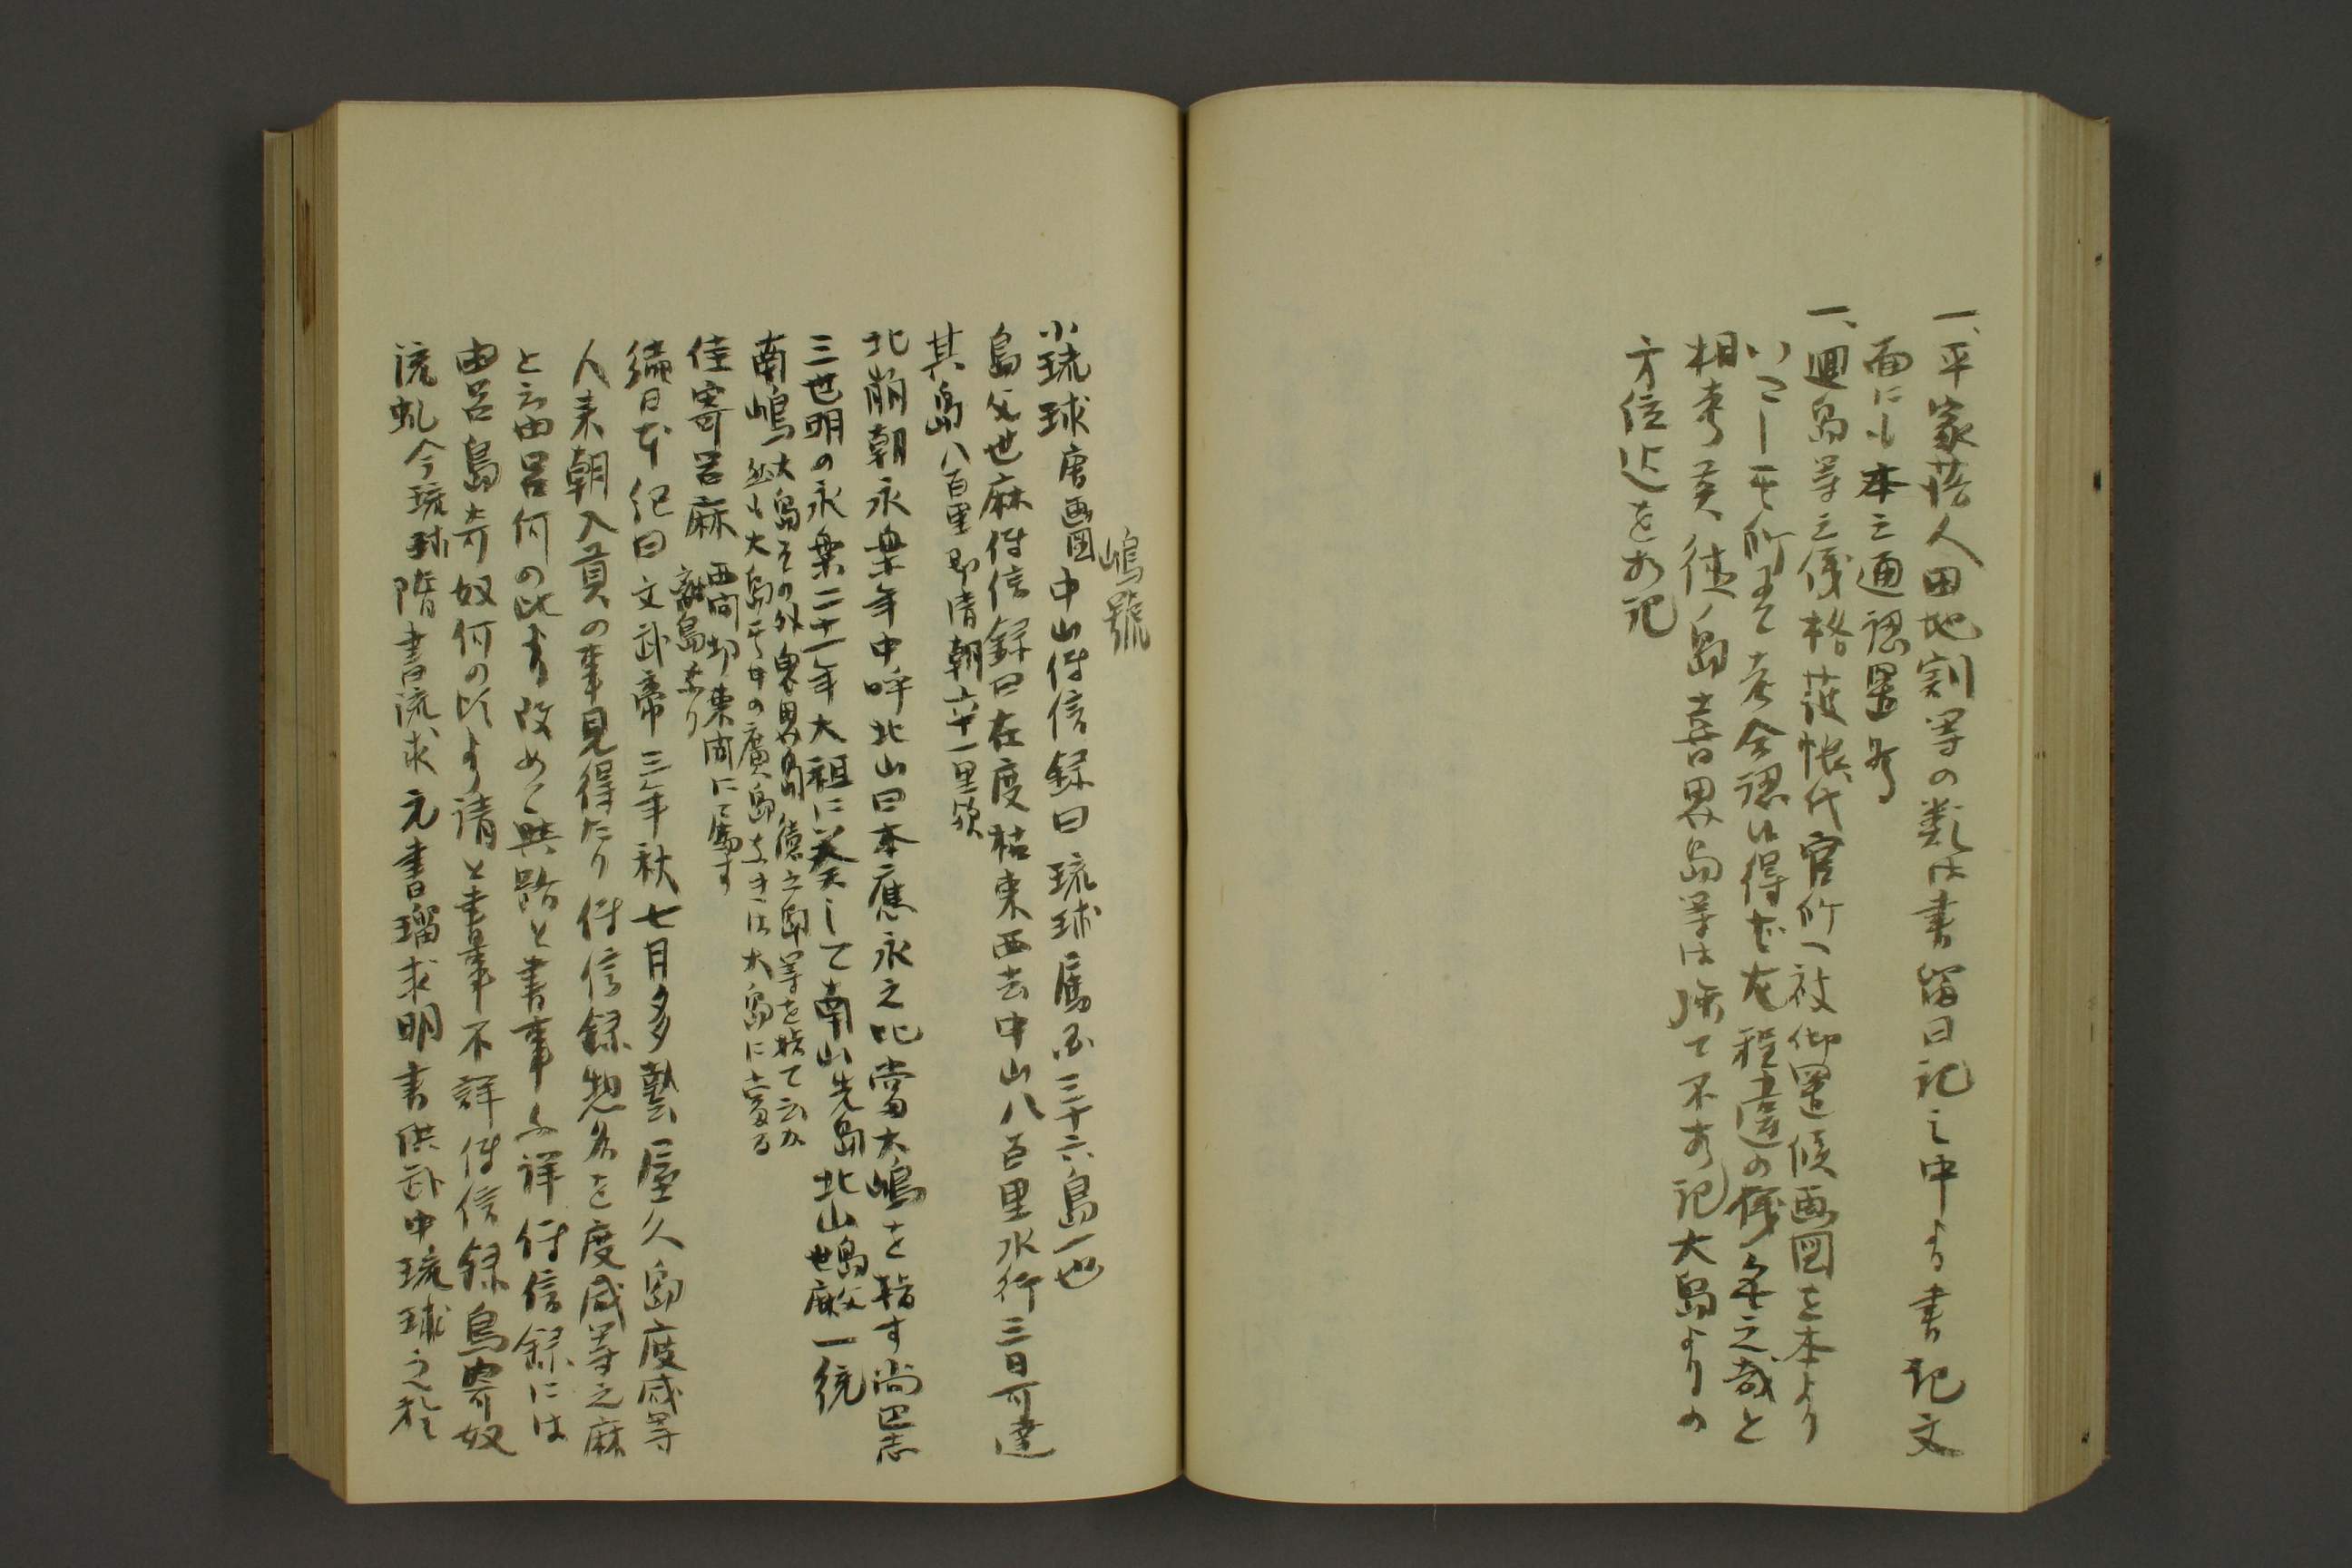 一、平家落人田地割等の類は書留日記之中より書記文
面にも本之通認置
一、迴島等之儀格護帳代官所へ被御置候画図を本より
其所より考合認候得共程違の儀之哉と
相考其徳ノ島喜界島等は不相記大島よりの
方位迄を相記
嶋號
小琉球唐画図中山伝信録曰琉球属島三十六島一也
島父世麻伝信録曰在度枯東西去中山八百里水行三日可達
其島八百里即清朝六十一里欤
北崩朝永楽年中呼北山曰本應永之比當大嶋を指す尚巴志
三世明の永楽二十一年大祖に次して南山先島北山島父世麻一統
南嶋大島その外鬼界島徳之島等を指て云か
然も大島其中の廣島なれは大島に當る
佳寄呂麻西間切東間に属す
離島なり
續日本紀曰文武帝三年秋七月多藝屋久島度感等
人来朝入貢の事見得たり伝信録惣名を度感等之麻
と云由呂何の比より改めて與路と書事不詳伝信録には
由呂島奇奴何の比より請と書事不詳伝信録烏奇奴
流虬今琉球隋書流求元書瑠求明書洪武中琉球之